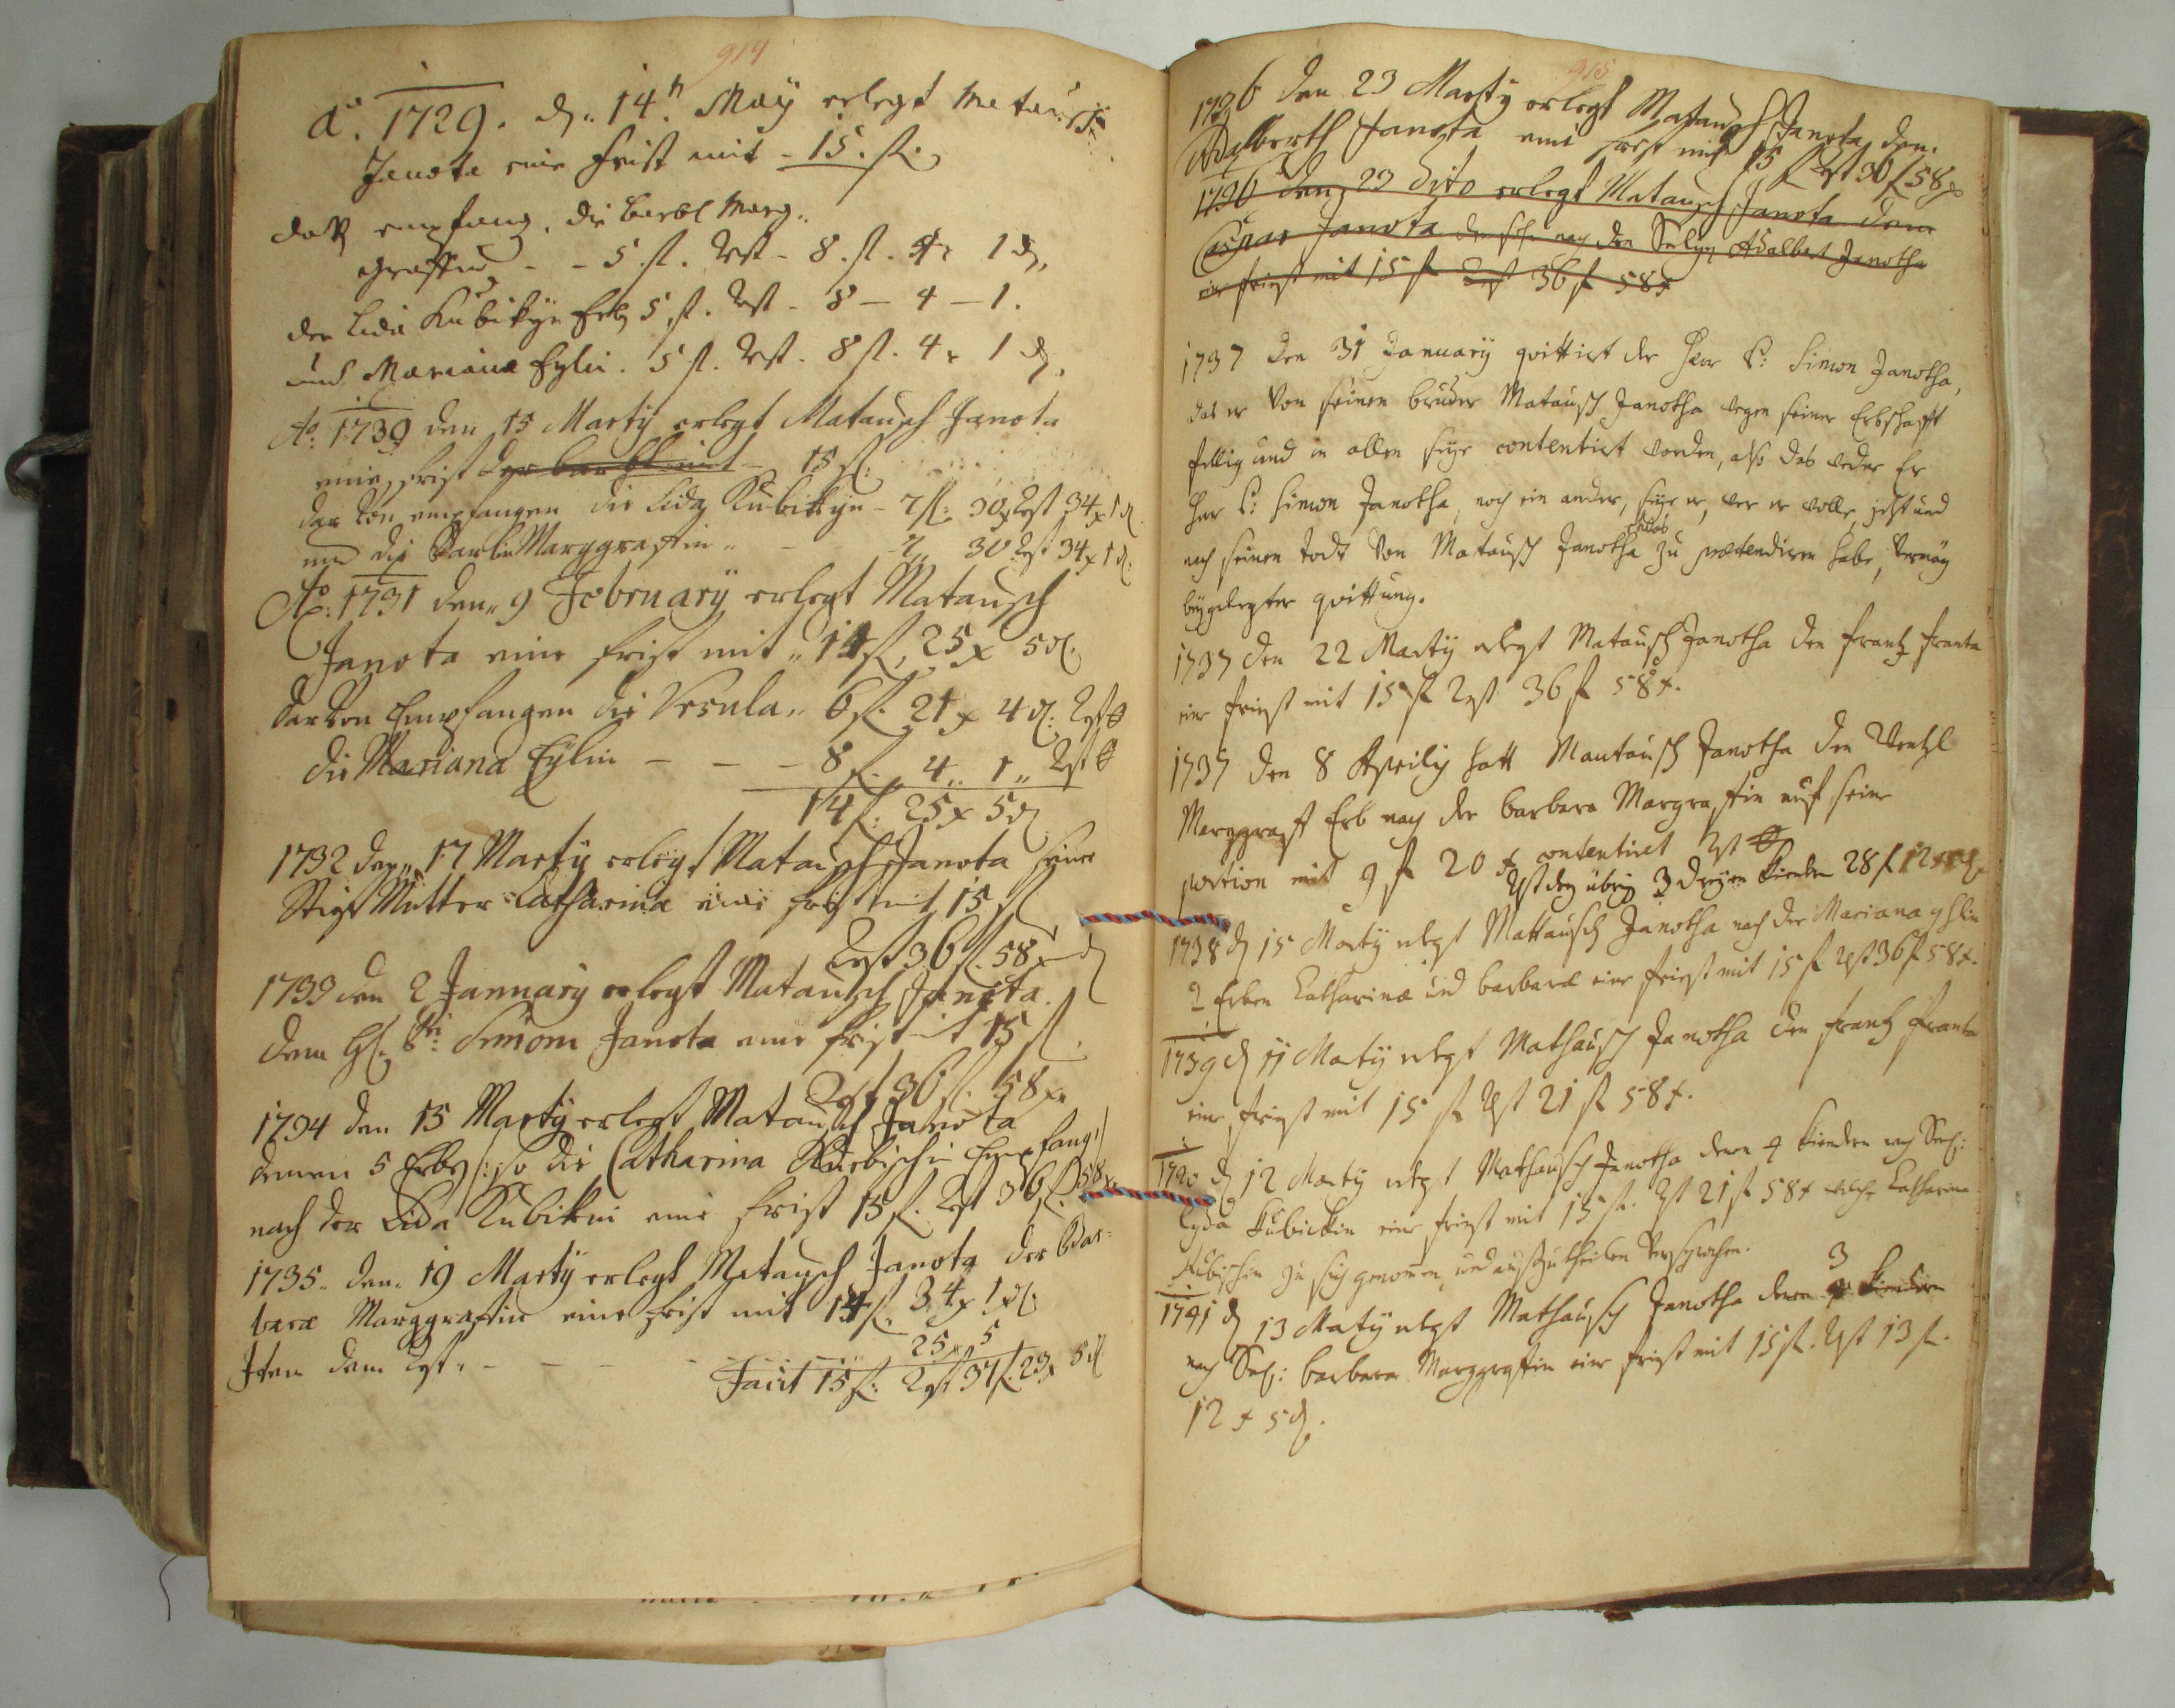 914
Aō. 1729. d. 14ᵗ May erlegt Matausch
Janota eine frist mit – 15. fl.
empfang. die Barbl Marg..
graffin – – 5. fl. Rest – 8. fl. 4 x 1 d.
der Lida Kubikyn Erb 5 fl. Rest – 8 – 4 – 1.
und Mariana Eylin. 5 fl. Rest. 8 fl. 4 x 1 d.
Ao: 1730 den 15 Marty erlegt Matausch Janota
eine frist der barbl mit – 15 fl:
dar von empfangen die Lida Kubikyn – 7 fl: 30 x Rest 34 x 1 d.
und die Barlin Marggraffin „ – – 7 „ 30 Rest 34 x 1 d.
Ao: 1731 den „ 9 February erlegt Matausch
Janota eine frist mit „ 14 fl, 25 x 5 d.
darvon Empfangen die Vrsula „ 6 fl. 21 x 4 d: Rest 0
die Mariana Eylin – – – 8 fl. 4 „ 1 „ Rest 0
14 fl: 25 x 5 d
1732 den „ 17 Marty erlegt Matausch Janota seiner
Stieff Mutter Catharina eine frist mit 15 fl
Rest 36 fl. 58 x – d
1733 den 2 January erlegt Matausch Janota.
dem H. P: Simoni Janota eine frist mit 15 fl.
Rest 36 fl. 58 x.
1734 den 15 Marty erlegt Matausch Janota
denen 5 Erben /: so die Catharina Kubischin Empfang:/
nach der Lida Kubikin eine frist 15 fl. Rest 36 fl. 58 x
1735 „ den „ 19 Marty erlegt Matausch Janota der Bar:
baræ Marggraffin eine frist mit 14 fl. 34 x 1 d.
Item dem Rest „ – – – – 25 x 5
Facit 15 fl: Rest 37 fl. 23 x 5 d
915
1736 den 23 Marty erlegt Matausch Janota dem
Adalberth Janota eine frist mit 15 fl Rest 36 fl 58 x
1736 den 23 dito erlegt Matausch Janota dem
Caspar Janota nach den Selign Adalbert Janotha
eine friest mit 15 fl Rest 36 fl 58 x
1737 den 31 January quittirt der Herr P: Simon Janotha,
das er von seinen bruder Matausch Janotha wegen seiner Erbschafft
föllig und in allen seye contentirt worden, also das weder Er
Herr P: Simon Janotha, noch ein ander, seye er, wer er wolle, jetzt und
nach seinen todt von Matausch Janotha etwas zu prætendiren habe, vermög
beygelegter quittung.
1737 den 22 Marty erlegt Matausch Janotha den Frantz Franta
eine friest mit 15 fl Rest 36 fl 58 x.
1737 den 8 Aprily hatt Mautausch Janotha den Wentzl
Marggraff Erb nach der Barbara Margraffin auff seine
portion mit 9 fl 20 x contentirt Rest 0
Rest den übrig 3 dreyen Kindern 28 fl 12 x 5 d.
1738 d 15 Marty erlegt Mattausch Janotha nach der Mariana Ehlin
2 Erben Catharinæ und Barbaræ eine friest mit 15 fl Rest 36 fl 58 x.
1739 d 11 Marty erlegt Mathausch Janotha den Frantz Franta
eine friest mit 15 fl Rest 21 fl 58 x.
1740 d 12 Marty erlegt Mathausch Janotha denen 4 Kindern nach Seel:
Lyda Kubickin eine friest mit 15 fl. Rest 21 fl 58 x welche Catharina
Kubischin zu sich genomen, und auszutheilen versprochen.
3
1741 d 13 Marty erlegt Mathausch Janotha denen 4 Kindern
nach Seel: Barbara Marggraffin eine friest mit 15 fl. Rest 13 fl.
12 x 5 d.